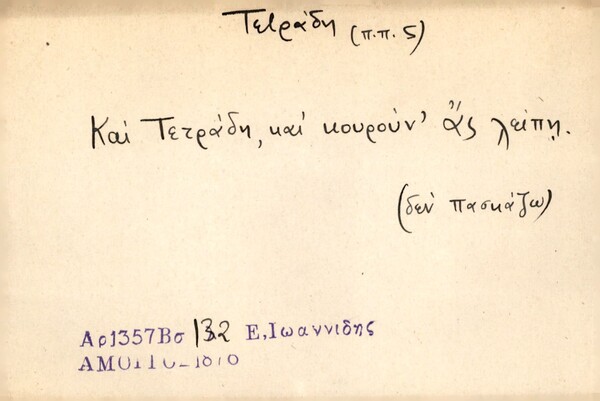 Τετράδη (π.π. 5)
Καὶ Τετράδη, καὶ κουρούν' ἄς λείπῃ.
(δὲν πασκάζω)
Αρ1357Βσ 132 Ε,Ιωαννιδης